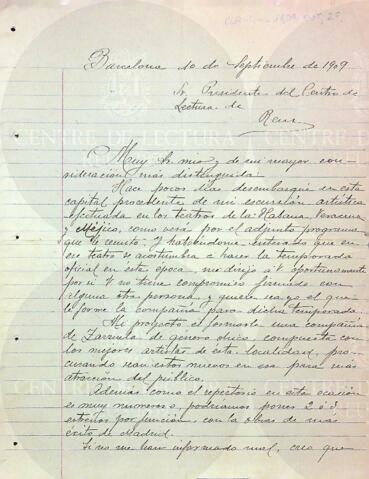 Barcelona 10 de Septiembre de 1909.
Sr. Presidente del Centro de
Lectura de
Reus
Muy Sr. mio y de mi mayor con-
sideración más distinguida.
Hace pocos días desembarqué en esta
capital procedente de mi escursión artística
efectuada en los teatros de la Habana, Veracruz
y Méjico, como verá por el adjunto programa
que le remito. Y habiendome enterado que en
ese teatro se acostumbra a hacer la temporada
oficial en esta época, me dirijo a V. oportunamente
por si V. no tiene compromiso formado con
alguna otra persona, y quiere sea yo el que
le forme la compañia para dicha temporada.
Mi proyecto es formarle una compañia
de Zarzuela de genero chico, compuesta con
los mejores artistas de esta localidad, pro-
curando sean estos nuevos en esa para más
atracción del público.
Además como el repertorio en esta ocasión
es muy numeroso, podríamos poner 2 ó 3
estrenos por función, con las obras de más
éxito de Madrid.
Si no me han informado mal, creo que
CENTRE DE LECTURA